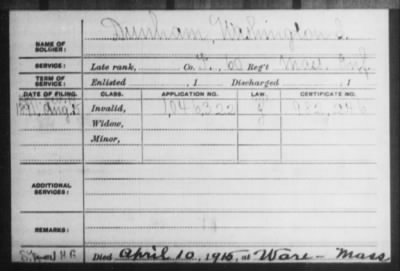 Dunham, Washington I.
NAME OF
SOLDIER:
SERVICE: Late rank, Co. F, 60 Reg't Mass Inf.
TERM OF
SERVICE: Enlisted , 1 Discharged , 1
DATE OF FILING. CLASS. APPLICATION NO. LAW. CERTIFICATE NO.
1891, Aug. Invalid, 1,046,322
Widow,
Minor,
ADDITIONAL
SERVICES:
REMARKS:
Died April 10, 1915, at Ware - Mass